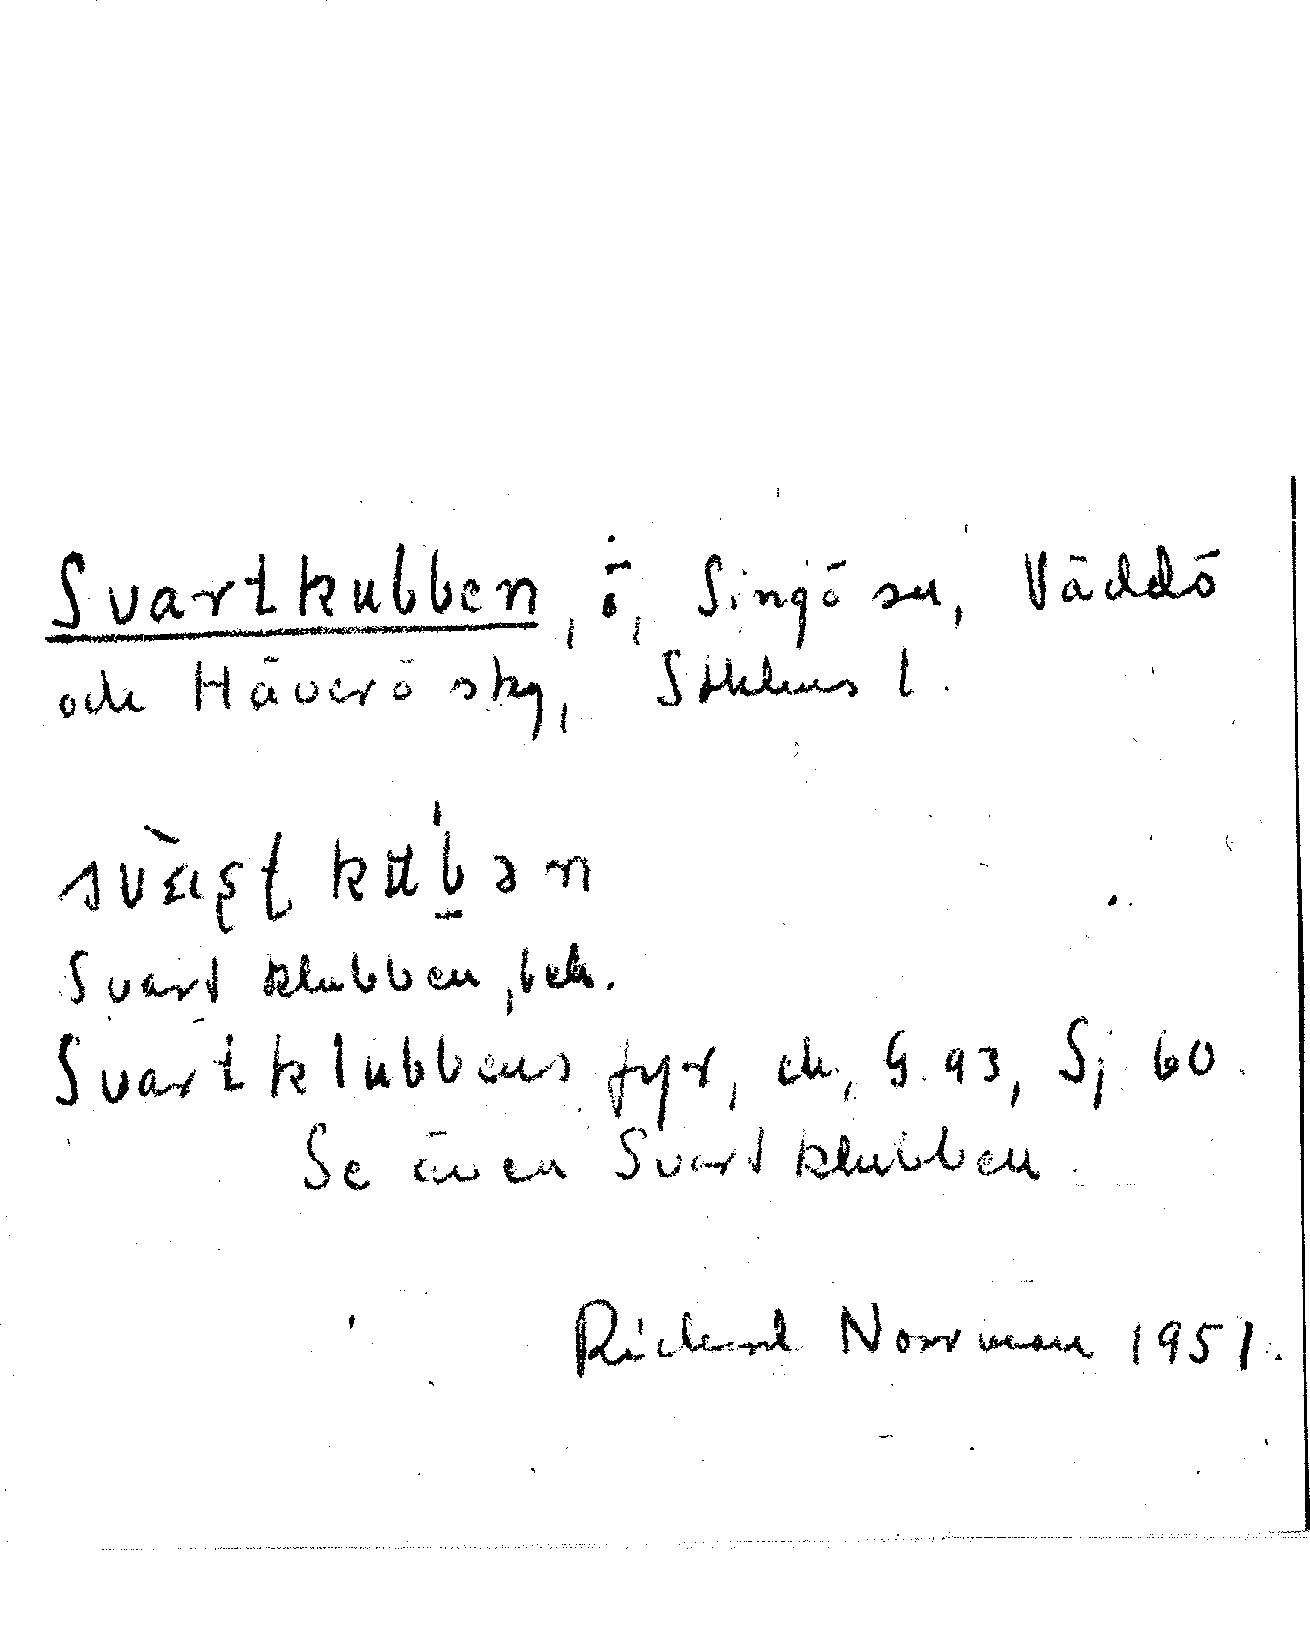 Svartkubben, ö, Singö sn, Väddö
och Häverö skg, Sthlms l.
Svartklubben, bek.
Svartklubbens fyr, ek, G. 93, Sj 60.
Se även Svartklubben.
Richard Norrman 1951.